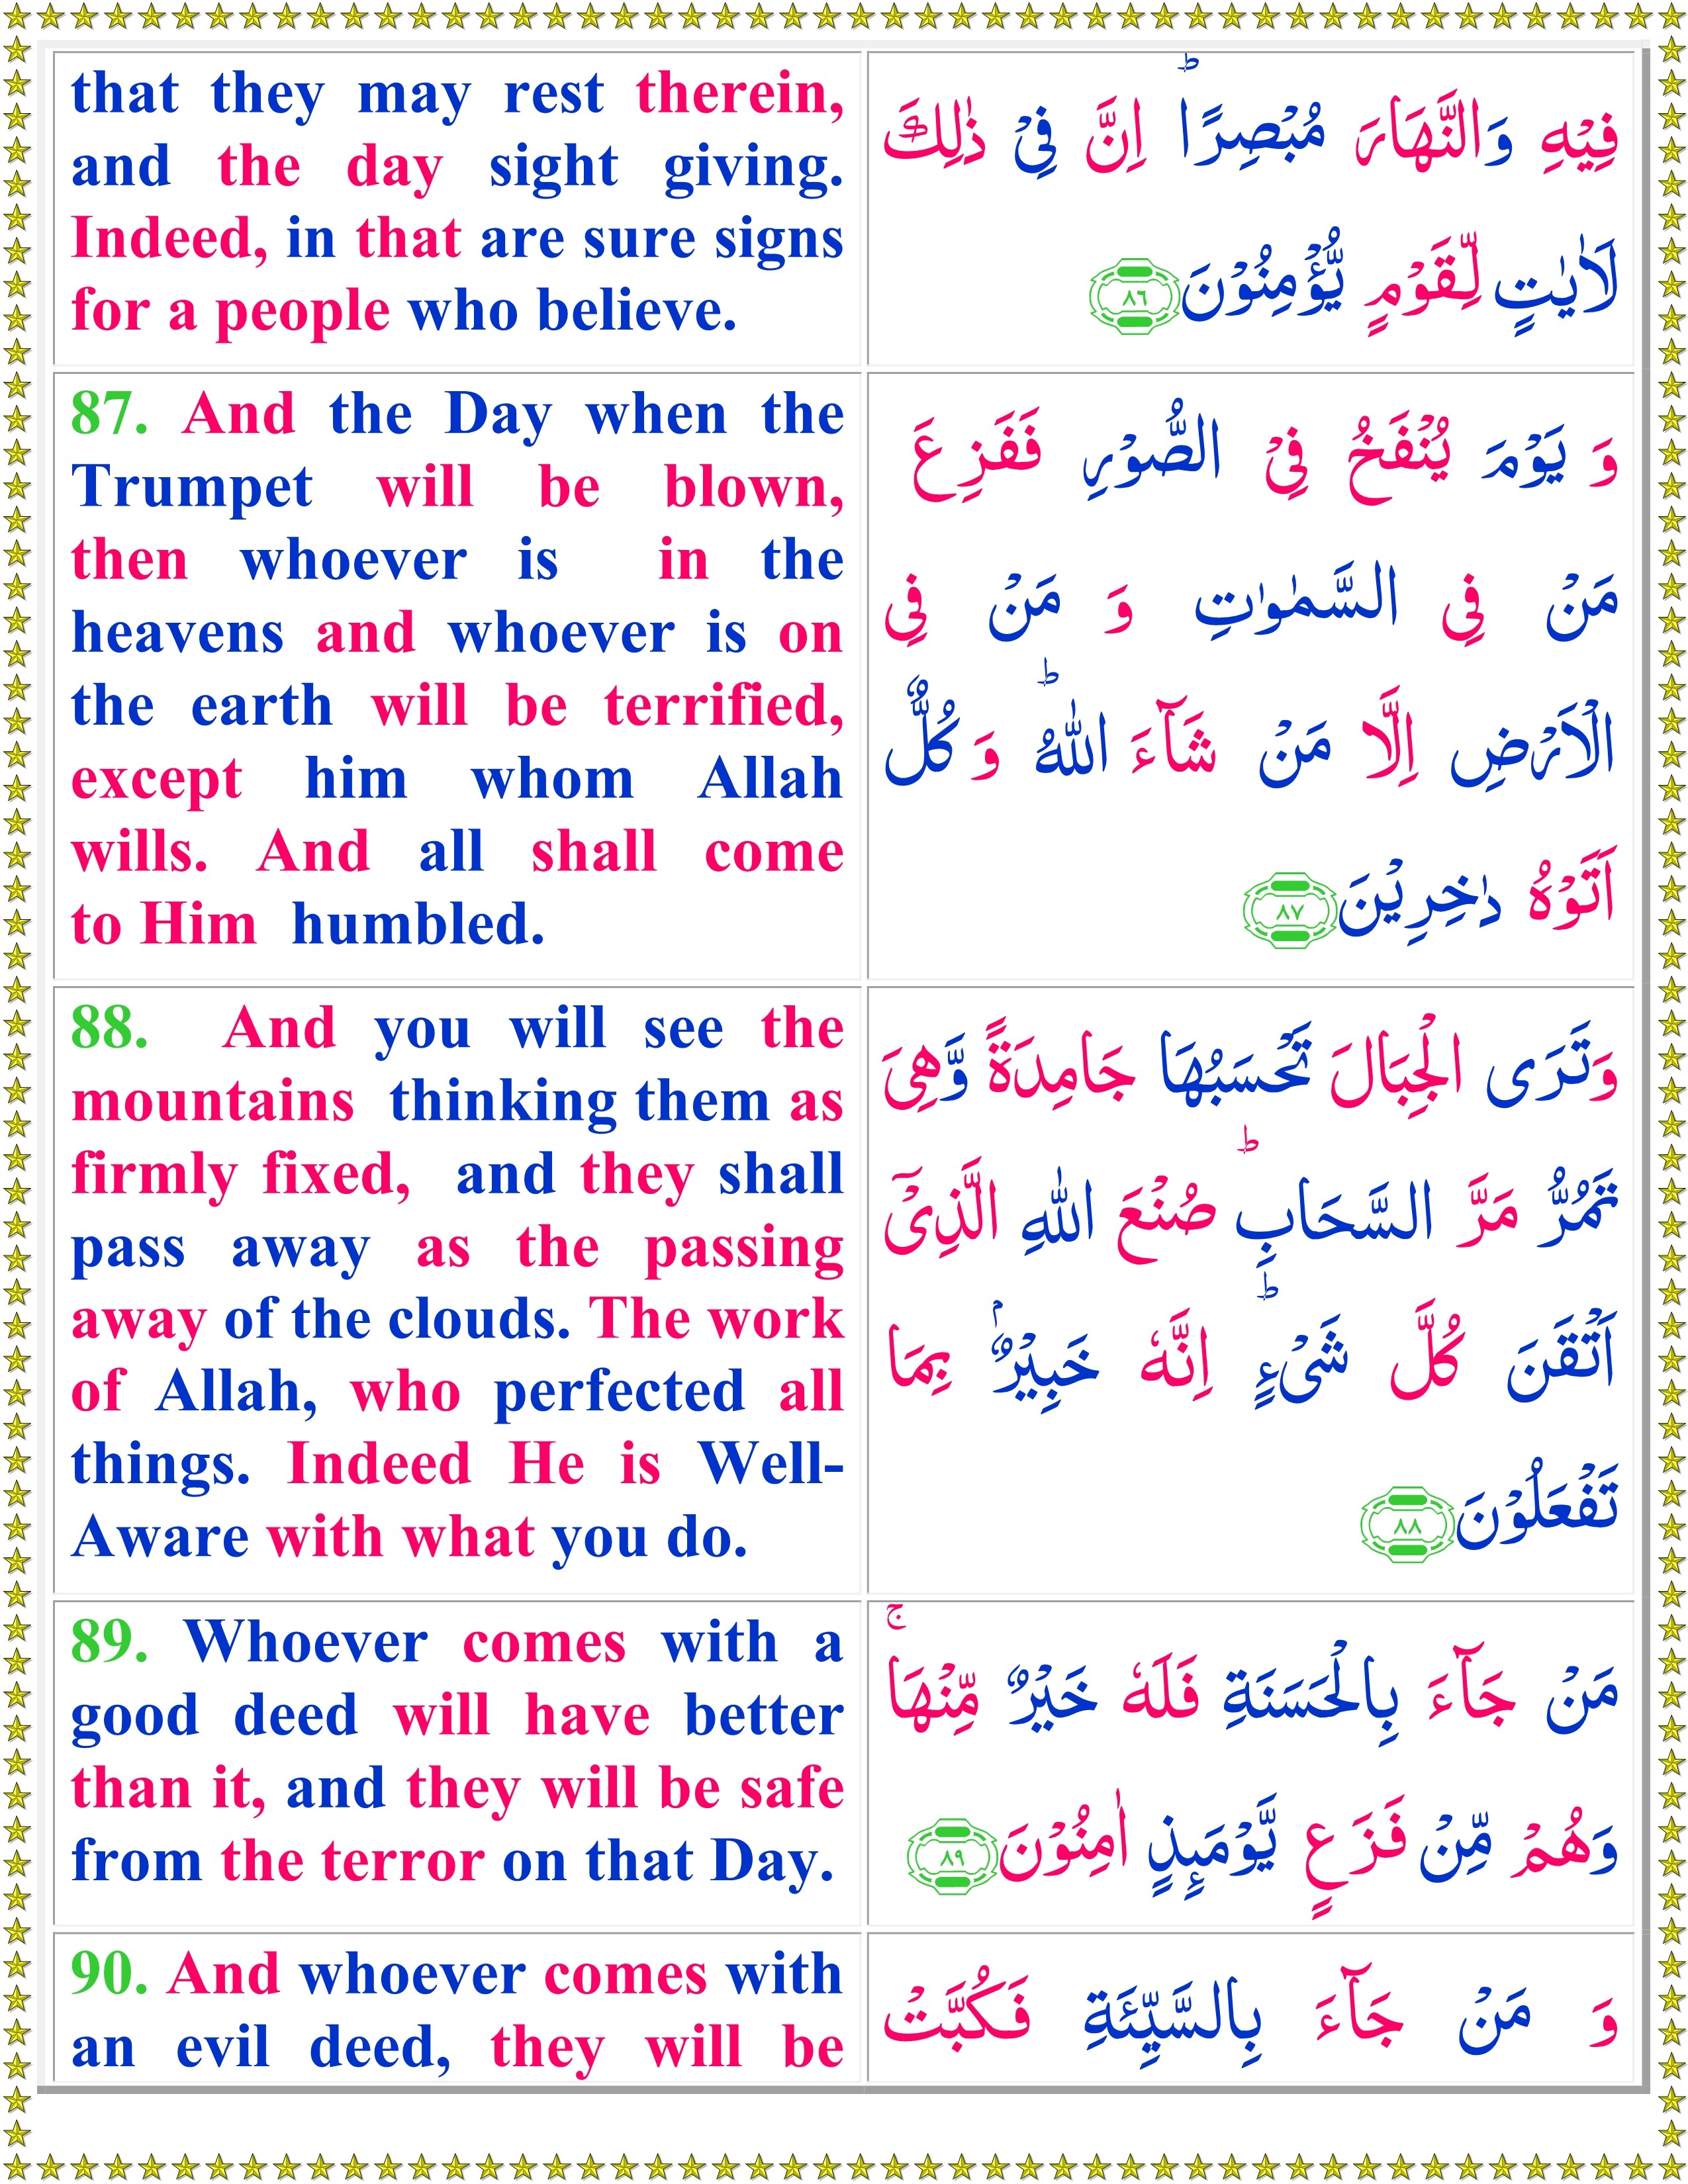 that they may rest therein,
and the day sight giving.
Indeed, in that are sure signs
for a people who believe.
فِيْهِ وَالنَّهَارَ مُبْصِرًا ؕ اِنَّ فِيْ ذٰلِكَ
لَاٰيٰتٍ لِّقَوْمٍ يُّؤْمِنُوْنَ ٨٦
87. And the Day when the
Trumpet will be blown,
then whoever is in the
heavens and whoever is on
the earth will be terrified,
except him whom Allah
wills. And all shall come
to Him humbled.
وَ يَوْمَ يُنْفَخُ فِي الصُّوْرِ فَفَزِعَ
مَنْ فِي السَّمٰوٰتِ وَ مَنْ فِي
الْاَرْضِ اِلَّا مَنْ شَآءَ اللّٰهُ ؕ وَ كُلٌّ
اَتَوْهُ دٰخِرِيْنَ ٨٧
88. And you will see the
mountains thinking them as
firmly fixed, and they shall
pass away as the passing
away of the clouds. The work
of Allah, who perfected all
things. Indeed He is Well-
Aware with what you do.
وَتَرَى الْجِبَالَ تَحْسَبُهَا جَامِدَةً وَّهِيَ
تَمُرُّ مَرَّ السَّحَابِ ؕ صُنْعَ اللّٰهِ الَّذِيْۤ
اَتْقَنَ كُلَّ شَيْءٍ ؕ اِنَّهٗ خَبِيْرٌۢ بِمَا
تَفْعَلُوْنَ ٨٨
89. Whoever comes with a
good deed will have better
than it, and they will be safe
from the terror on that Day.
مَنْ جَآءَ بِالْحَسَنَةِ فَلَهٗ خَيْرٌ مِّنْهَا ۚ
وَهُمْ مِّنْ فَزَعٍ يَّوْمَىِٕذٍ اٰمِنُوْنَ ٨٩
90. And whoever comes with
an evil deed, they will be
وَ مَنْ جَآءَ بِالسَّيِّئَةِ فَكُبَّتْ